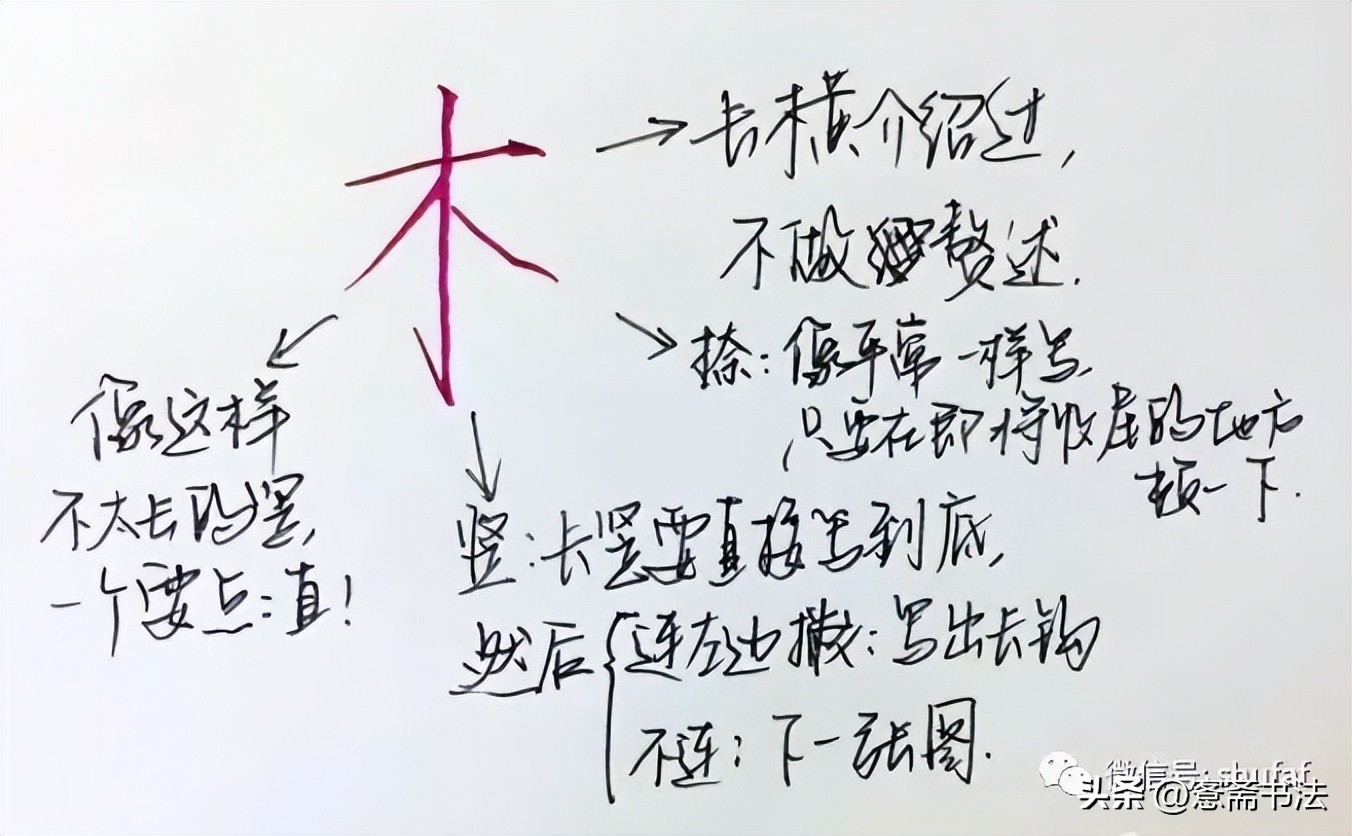 木
长横介绍过,
不做赘述.
捺:像平常一样写,
只要在即将收尾的地方
顿一下.
像这样
不太长的竖,
一个要点:直!
竖:长竖要直接写到底,
然后{连左边撇:写出长钩
不连:下一张图.
微信号:shufaf
头条@窓斋书法